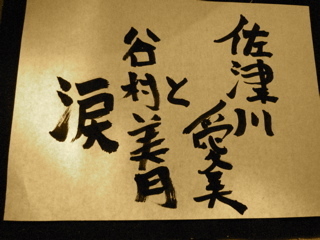 佐津川愛美
と
谷村美月
涙